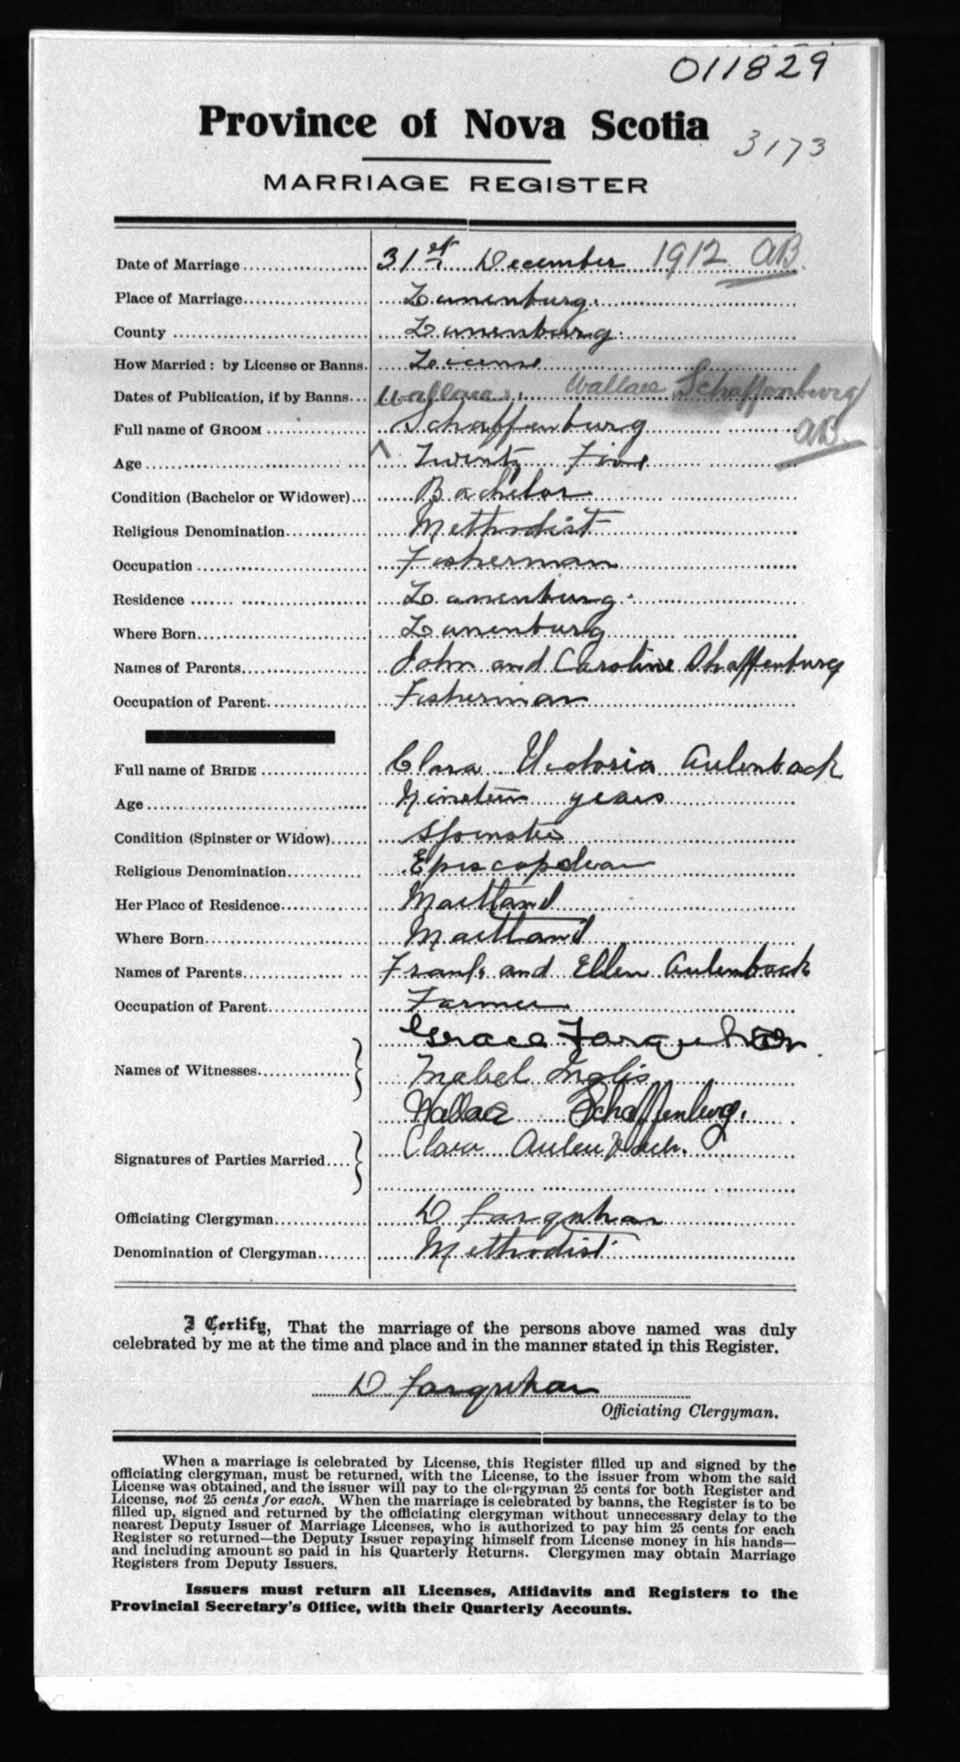 011829
Province of Nova Scotia
3173
MARRIAGE REGISTER
Date of Marriage 31st December 1912 AB.
Place of Marriage Lunenburg.
County Lunenburg.
How Married: by License or Banns. License
Dates of Publication, if by Banns Wallace Wallace Schaffenburg
Full name of GROOM Schaffenburg AB
Age ^ Twenty Five
Condition (Bachelor or Widower) Bachelor
Religious Denomination Methodist
Occupation Fisherman
Residence Lunenburg.
Where Born Lunenburg
Names of Parents John and Caroline Shaffenburg
Occupation of Parent Fisherman
Full name of BRIDE Clara Victoria Aulenback
Age Nineteen years
Condition (Spinster or Widow) Spinster
Religious Denomination Episcopalian
Her Place of Residence Maitland
Where Born Maitland
Names of Parents Frank and Ellen Aulenback
Occupation of Parent Farmer
Grace Farquhar
Names of Witnesses Mabel Inglis
Wallace Schaffenburg.
Signatures of Parties Married Clara Aulenback.
Officiating Clergyman D Farquhar
Denomination of Clergyman Methodist
I Certify, That the marriage of the persons above named was duly
celebrated by me at the time and place and in the manner stated in this Register.
D Farquhar
Officiating Clergyman.
When a marriage is celebrated by License, this Register filled up and signed by the
officiating clergyman, must be returned, with the License, to the issuer from whom the said
License was obtained, and the issuer will pay to the clergyman 25 cents for both Register and
License, not 25 cents for each. When the marriage is celebrated by banns, the Register is to be
filled up, signed and returned by the officiating clergyman without unnecessary delay to the
nearest Deputy Issuer of Marriage Licenses, who is authorized to pay him 25 cents for each
Register so returned—the Deputy Issuer repaying himself from License money in his hands—
and including amount so paid in his Quarterly Returns. Clergymen may obtain Marriage
Registers from Deputy Issuers.
Issuers must return all Licenses, Affidavits and Registers to the
Provincial Secretary's Office, with their Quarterly Accounts.